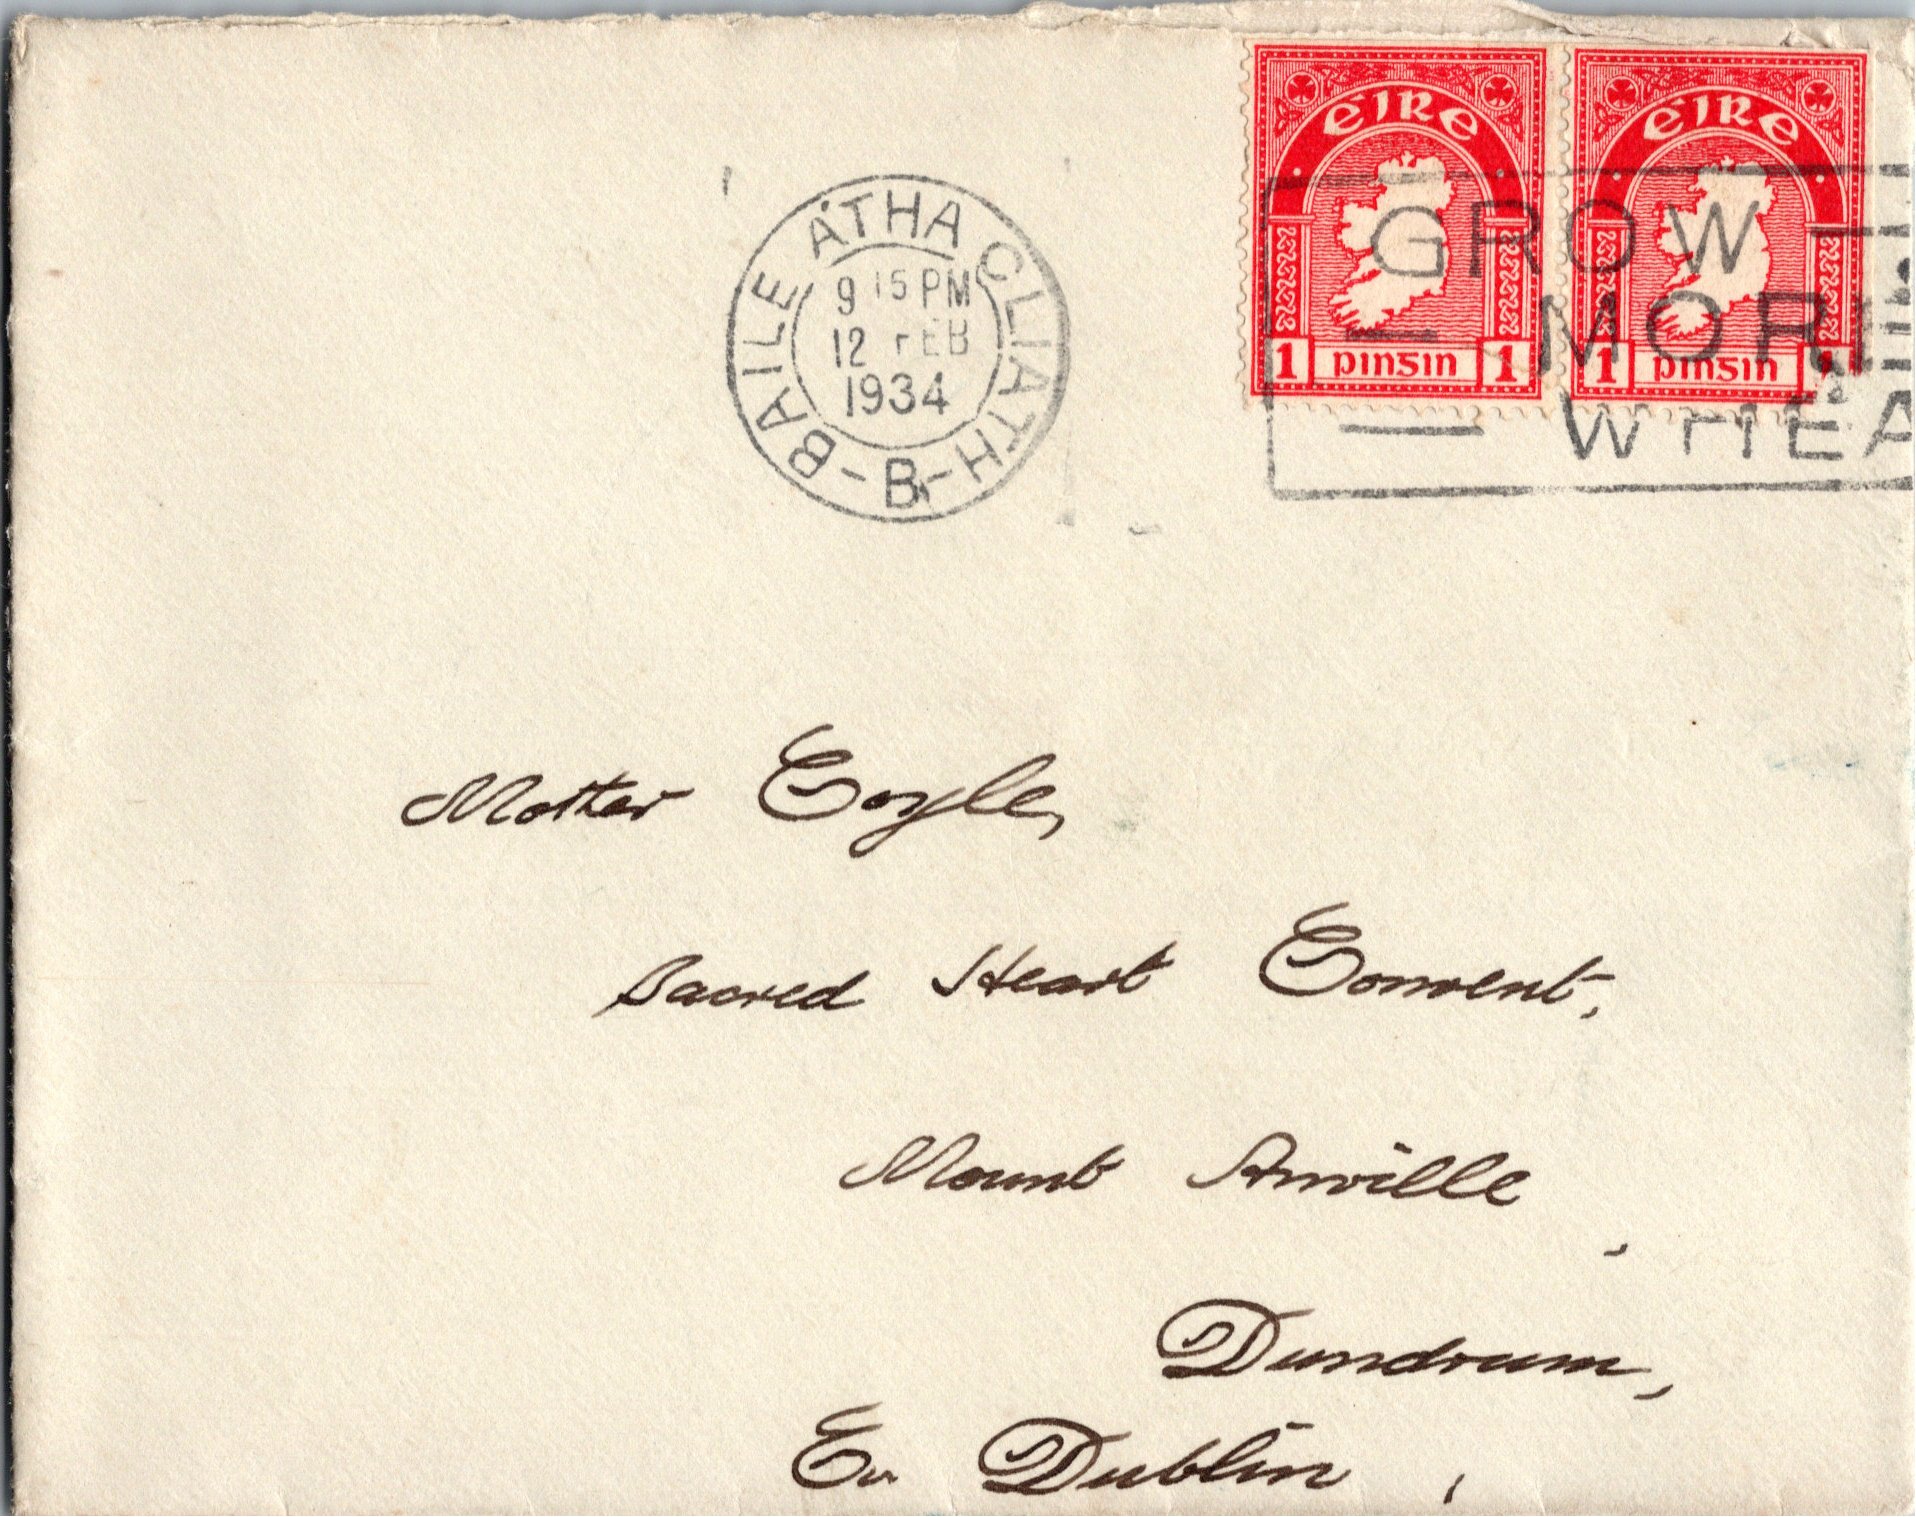 ÉIRE ÉIRE
1 pinġin 1 1 pinġin 1
BAILE ÁTHA CLIATH
9 15 PM
12 FEB
1934
-B-
GROW
MORE
WHEA
Mother Coyle,
Sacred Heart Convent,
Mount Anville,
Dundrum,
Co Dublin,